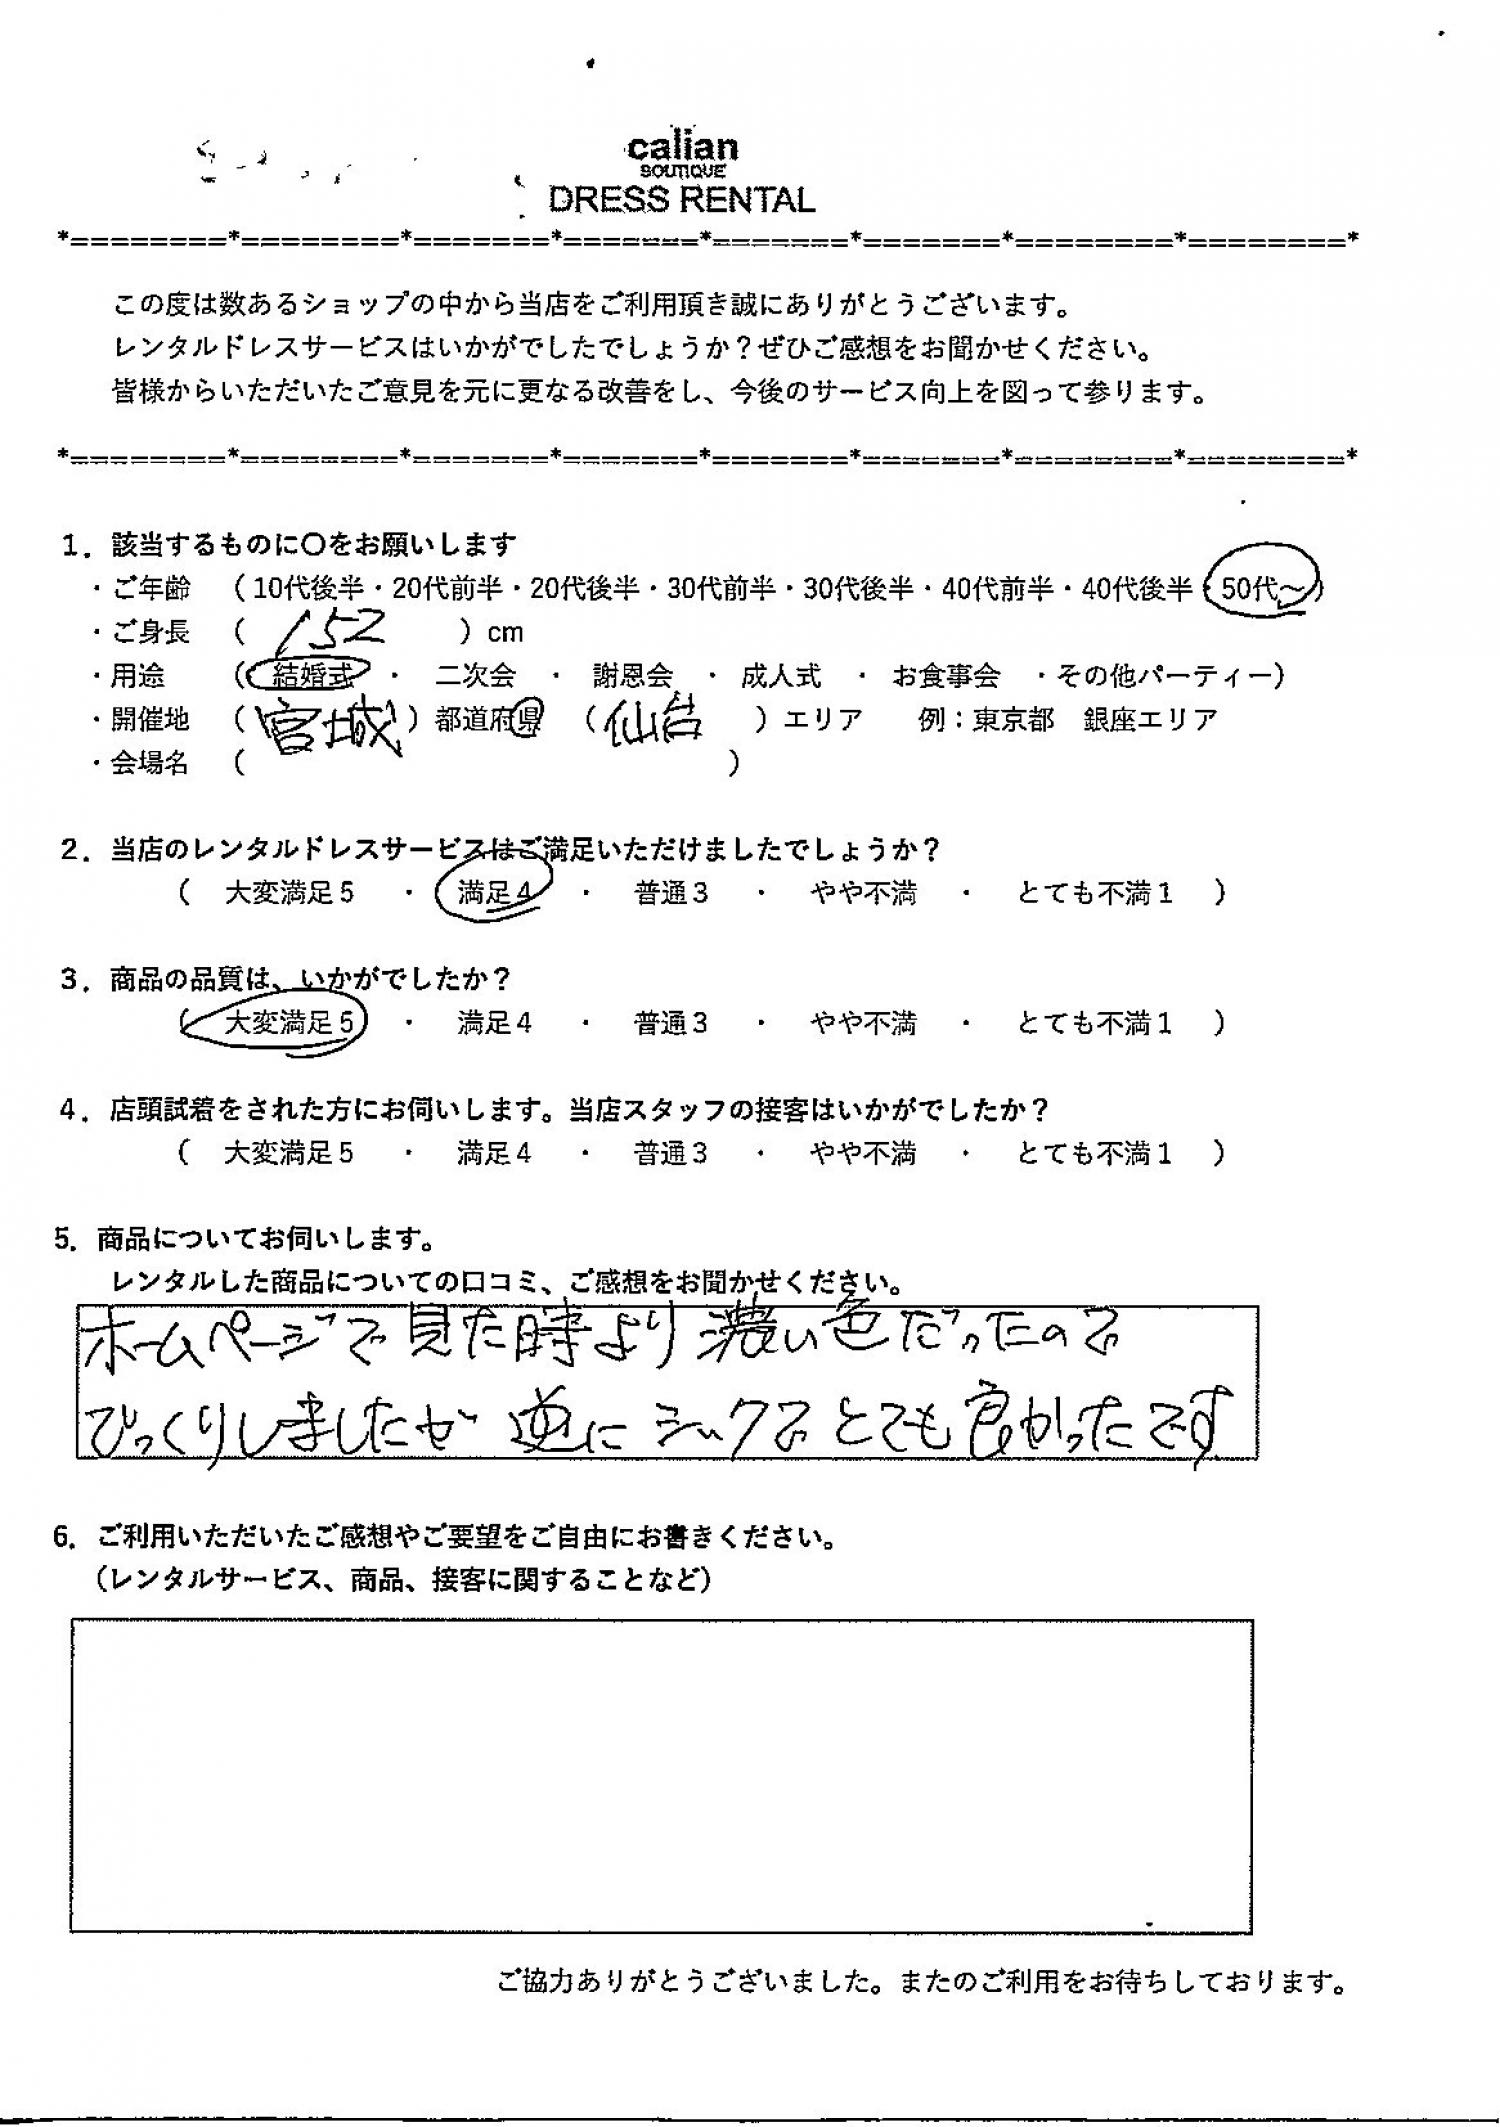 calian
BOUTIQUE
DRESS RENTAL
*========*========*=======*=======*=======*=======*========*========*
この度は数あるショップの中から当店をご利用頂き誠にありがとうございます。
レンタルドレスサービスはいかがでしたでしょうか？ぜひご感想をお聞かせください。
皆様からいただいたご意見を元に更なる改善をし、今後のサービス向上を図って参ります。
*========*========*=======*=======*=======*=======*========*========*
1．該当するものに〇をお願いします
・ご年齢 （10代後半・20代前半・20代後半・30代前半・30代後半・40代前半・40代後半・50代～）
・ご身長 （ 152 ）cm
・用途 （結婚式 ・ 二次会 ・ 謝恩会 ・ 成人式 ・ お食事会 ・その他パーティー）
・開催地 （宮城）都道府県 （仙台 ）エリア 例：東京都 銀座エリア
・会場名 （ ）
2．当店のレンタルドレスサービスはご満足いただけましたでしょうか？
（ 大変満足５ ・ 満足４ ・ 普通３ ・ やや不満 ・ とても不満１ ）
3．商品の品質は、いかがでしたか？
（ 大変満足５ ・ 満足４ ・ 普通３ ・ やや不満 ・ とても不満１ ）
4．店頭試着をされた方にお伺いします。当店スタッフの接客はいかがでしたか？
（ 大変満足５ ・ 満足４ ・ 普通３ ・ やや不満 ・ とても不満１ ）
5．商品についてお伺いします。
レンタルした商品についての口コミ、ご感想をお聞かせください。
ホームページで見た時より濃い色だったので
びっくりしましたが逆にシックでとても良かったです
6．ご利用いただいたご感想やご要望をご自由にお書きください。
（レンタルサービス、商品、接客に関することなど）
ご協力ありがとうございました。またのご利用をお待ちしております。